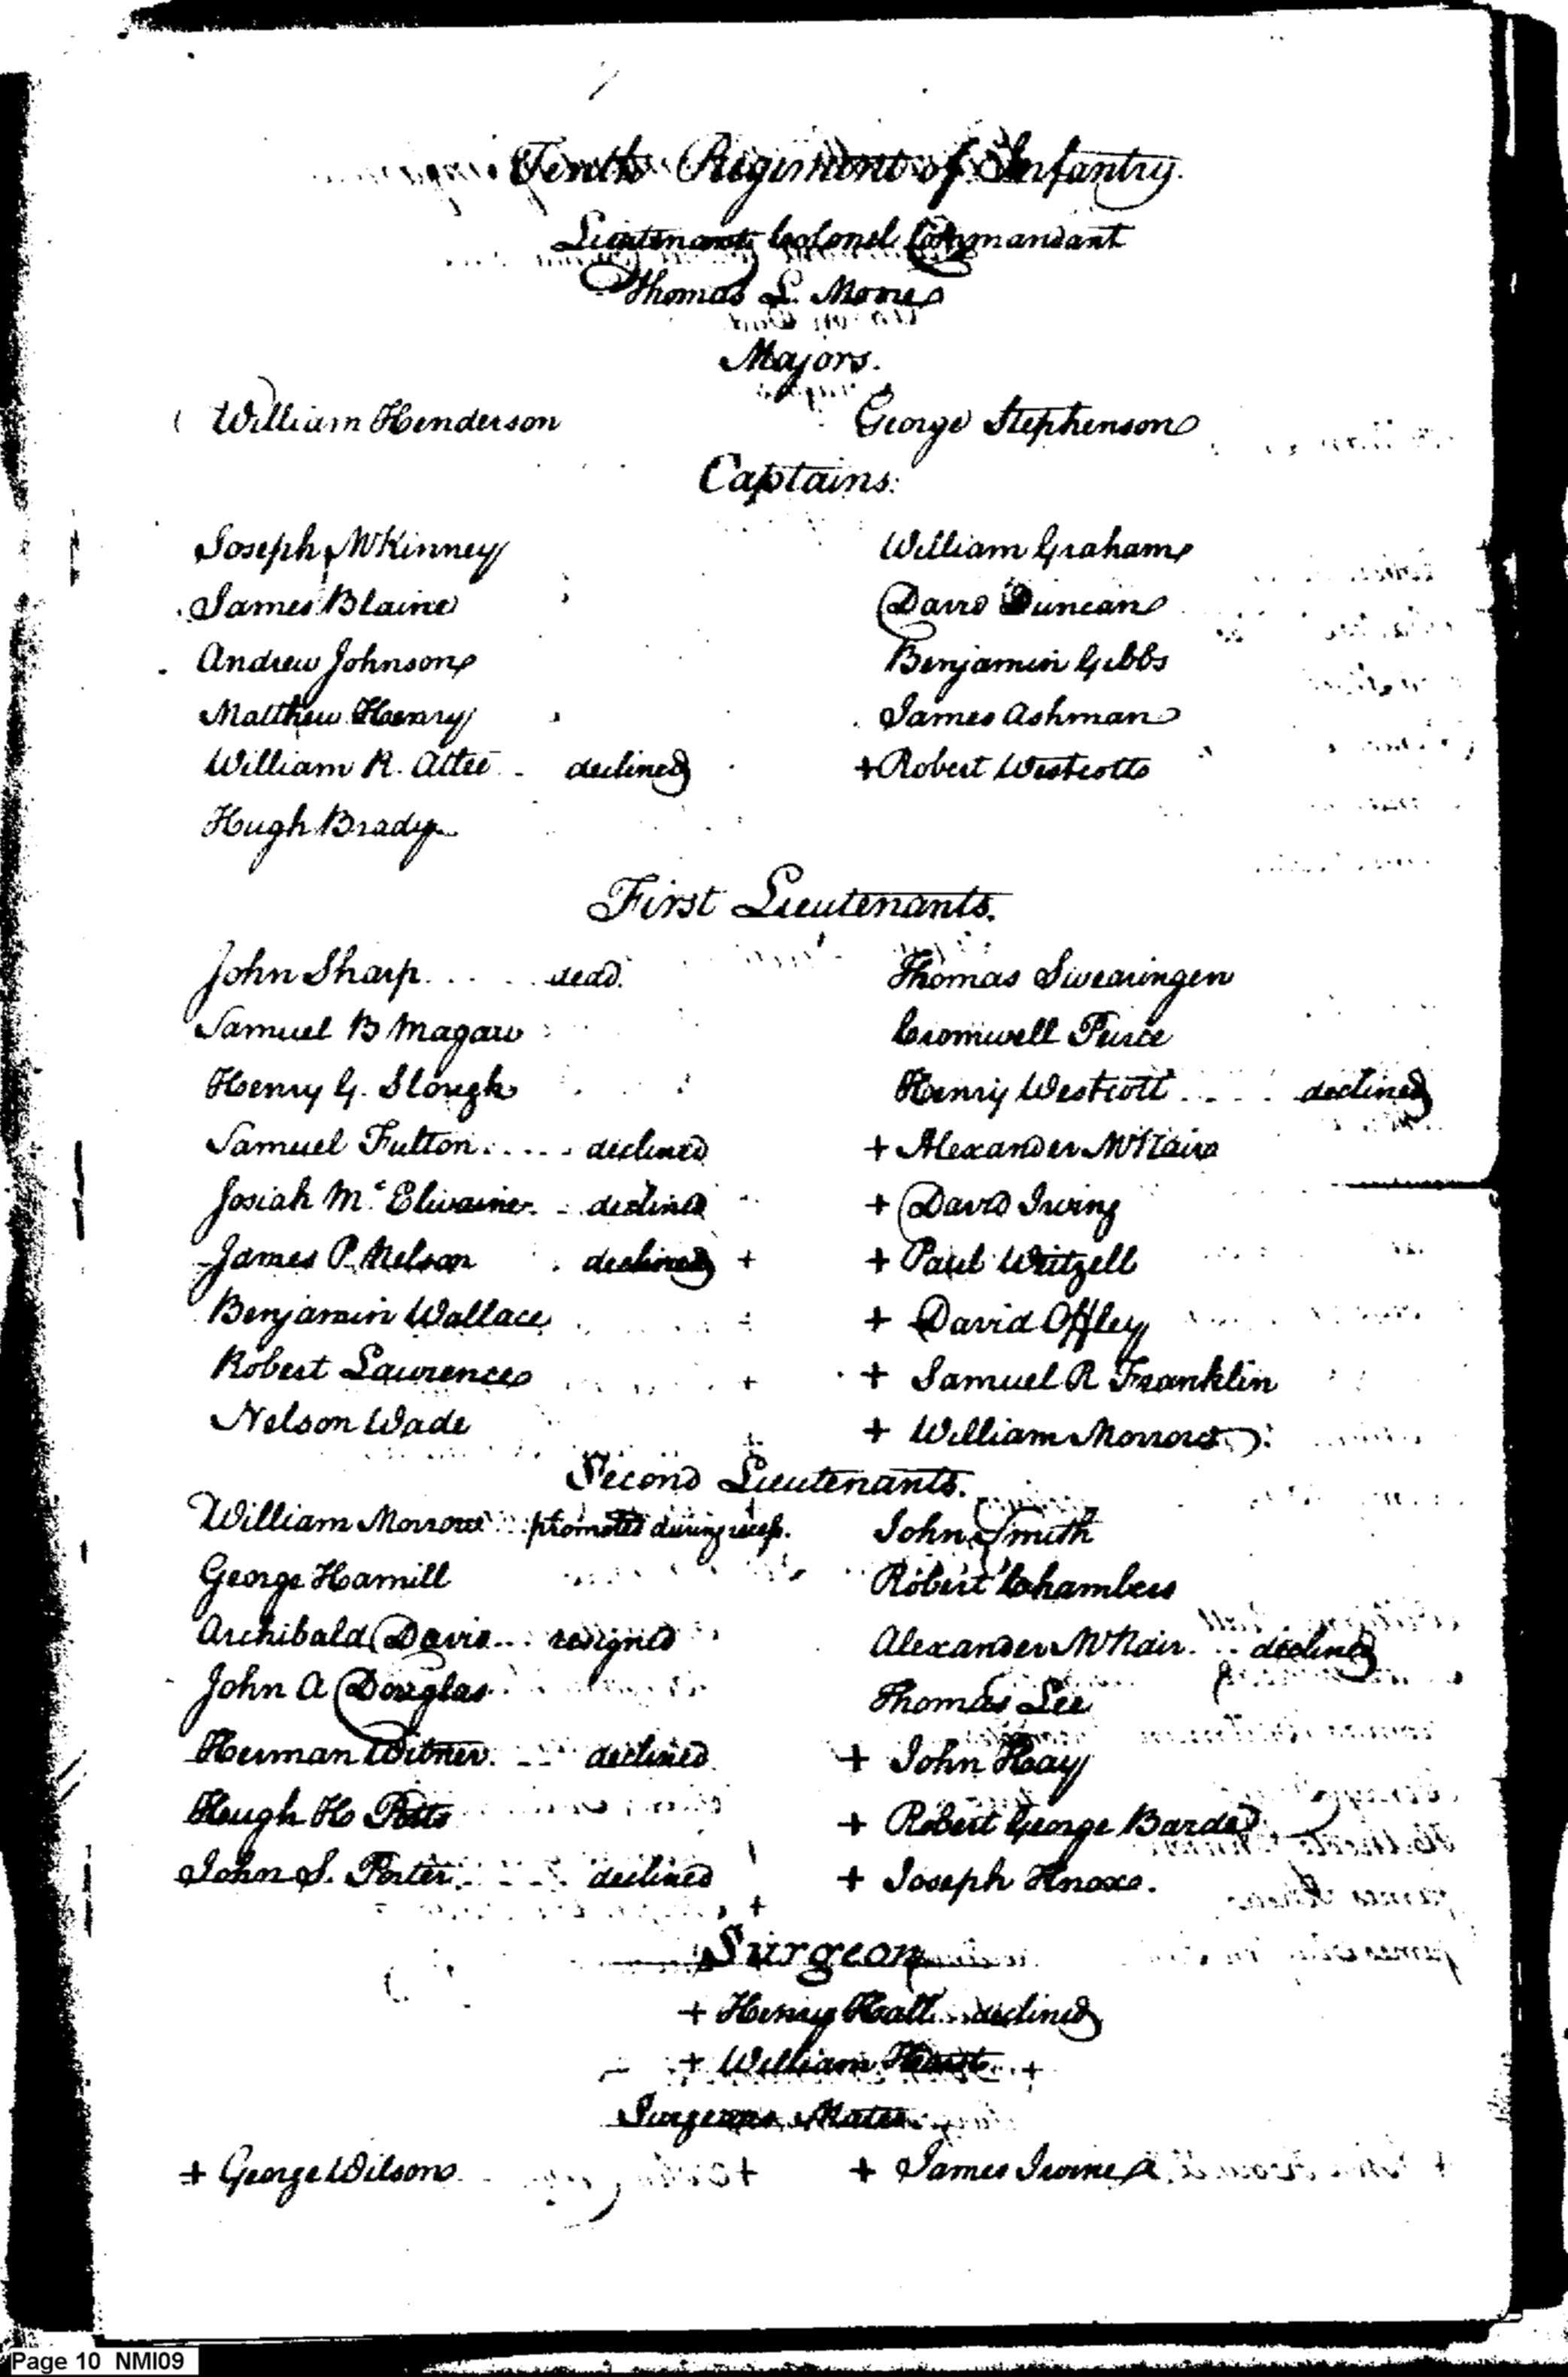 Tenth Regiment of Infantry.
Lieutenant Colonel Commandant
Thomas L. Moore
Majors.
William Henderson George Stephenson
Captains.
Joseph McKinney William Graham
James Blaine David Duncan
Andrew Johnson Benjamin Gibbs
Matthew Henry James Ashman
William R. Atlee declined + Robert Westcott
Hugh Brady
First Lieutenants.
John Sharp dead. Thomas Swearingen
Samuel B Magaw Cromwell Peirce
Henry G. Slough Henry Westcott declined
Samuel Fulton declined + Alexander McNair
Josiah Mc Elwaine declined + David Irving
James P. Nelson declined + + Paul Weitzell
Benjamin Wallace + David Offley
Robert Lawrence + + Samuel R Franklin
Nelson Wade + + William Morrow
Second Lieutenants.
William Morrow promoted during recess. John Smith
George Hamill Robert Chambers
Archibald Davis resigned Alexander McNair declined
John A Douglas Thomas Lee
Herman Witner declined + John Hay
Hugh H Potts + Robert George Barde
John S. Porter declined + Joseph Knox.
+
Surgeon
+ Henry Hall declined
+ William +
Surgeons Mates
+ George Wilson + + James Irvine
Page 10 NMI09